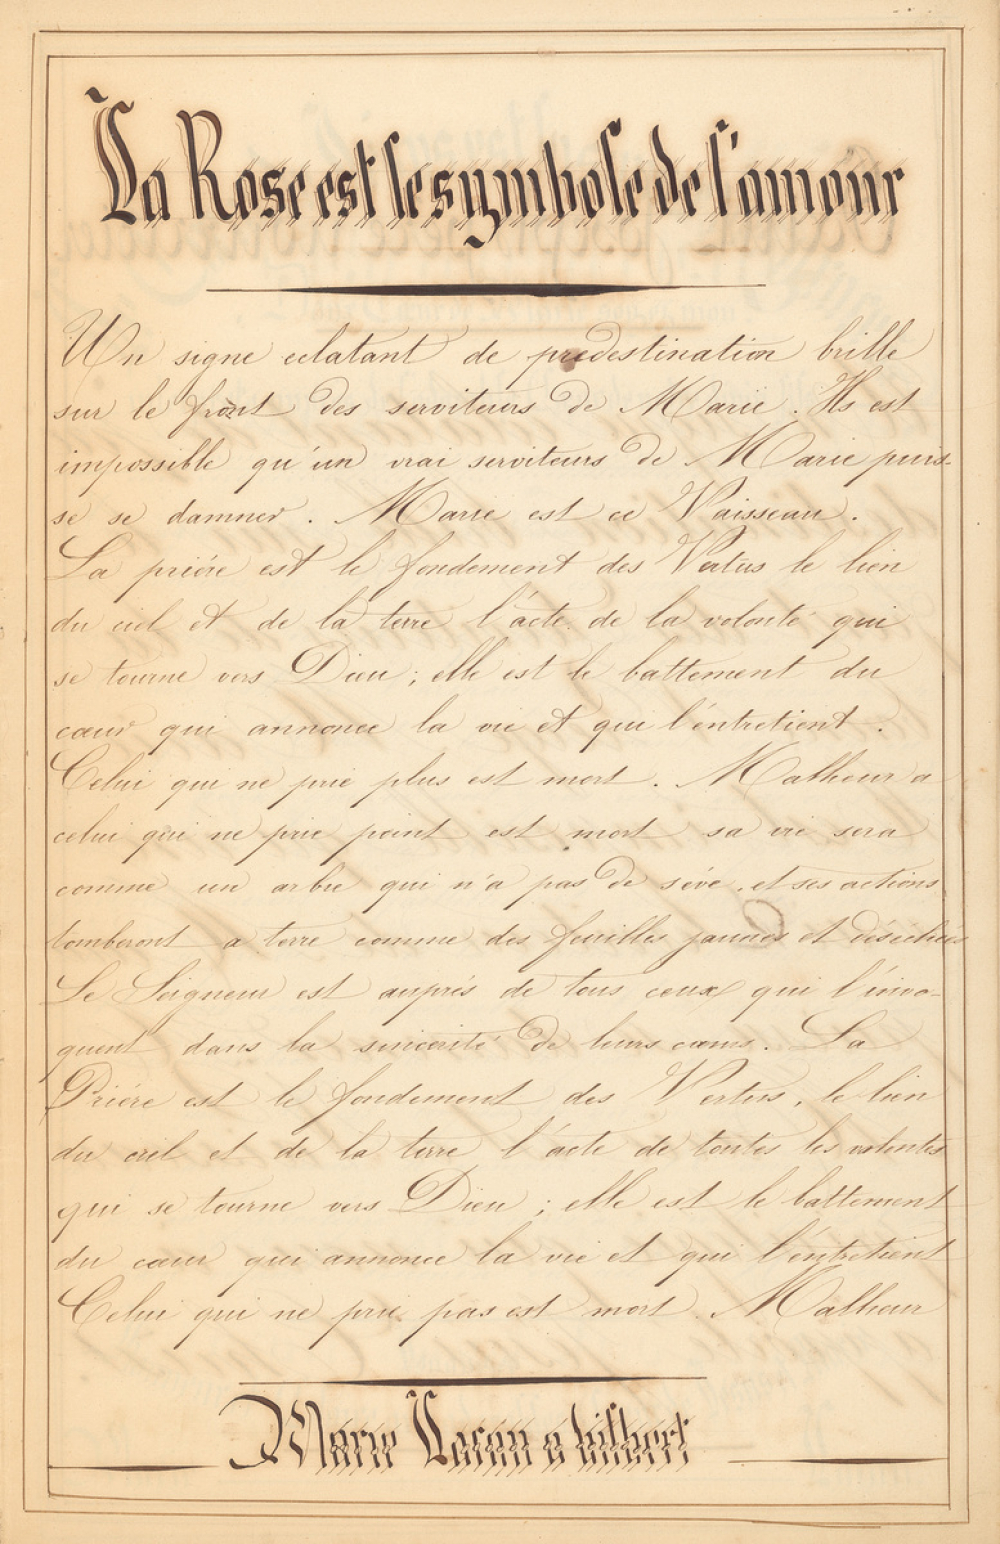 La Rose est le symbole de l'amour
Un signe eclatant de predestination brille
sur le front des serviteurs de Marie. Ils est
impossible qu'un vrai serviteurs de Marie puis-
se se damner. Marie est ce Vaisseau.
La priére est le fondement des Vertus le lien
du ciel et de la terre l'acte de la volonté qui
se tourne vers Dieu ; elle est le battement du
cœur qui annonce la vie et qui l'entretient.
Celui qui ne prie plus est mort. Malheur a
celui qui ne prie point est mort sa vie sera
comme un arbre qui n'a pas de séve, et ses actions
tomberont a terre comme des feuilles jaunes et déséchées
Le Seigneur est auprés de tous ceux qui l'invo-
quent dans la sincérité de leurs cœurs. La
Priére est le fondement des Vertus, le lien
du ciel et de la terre l'acte de toutes les volontés
qui se tourne vers Dieu ; elle est le battement
du cœur qui annonce la vie et qui l'entretient
Celui qui ne prie pas est mort. Malheur
Marie a